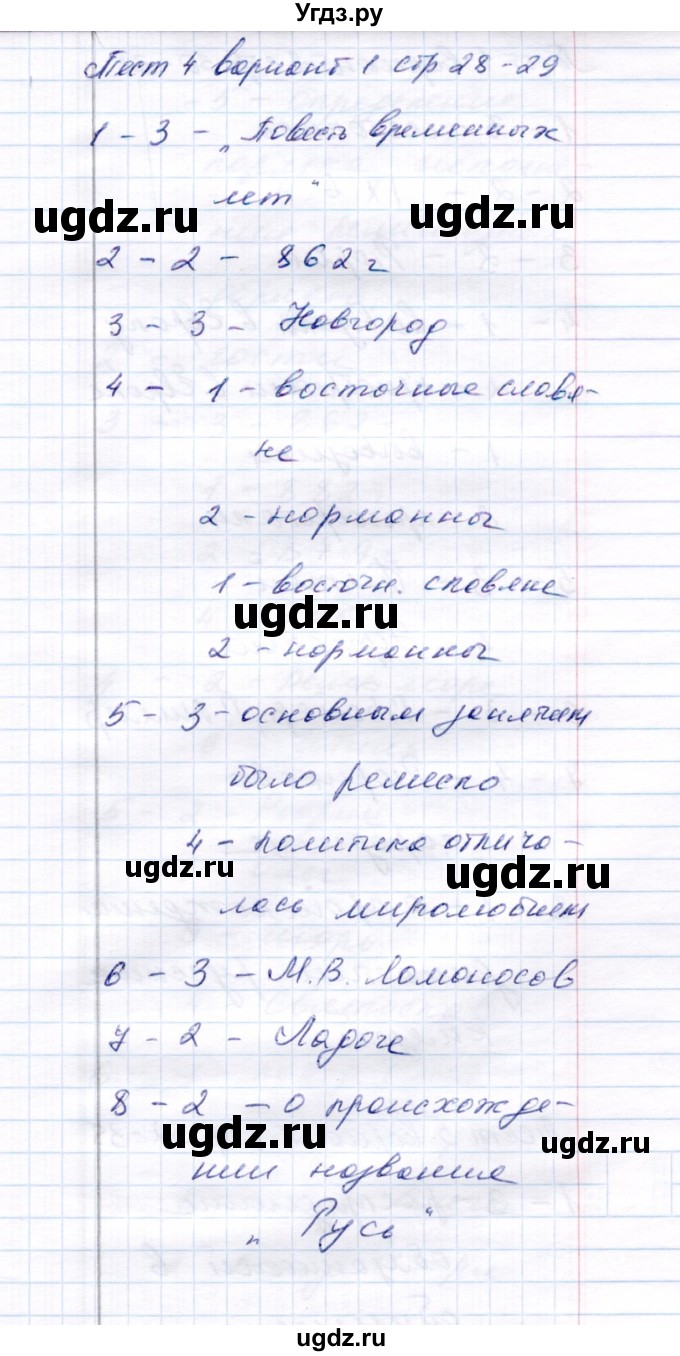 Угдз.ру
Тест 4 вариант 1 стр 28-29
1 - 3 - „Повесть временных
лет"
ugdz.ru ugdz.ru
2 - 2 - 862 г
3 - 3 - Новгород
4 - 1 - восточные славя-
не
2 - норманны
1 - восточн. славяне
ugdz.ru
2 - норманны
5 - 3 - основным занятием
было ремесло
4 - политика отлича-
ugdz.ru ugdz.ru
лась миролюбием
6 - 3 - М.В. Ломоносов
7 - 2 - Ладоге
8 - 2 - о происхожде-
ugdz.ru ugdz.ru
нии названия
„Русь"
ugdz.ru